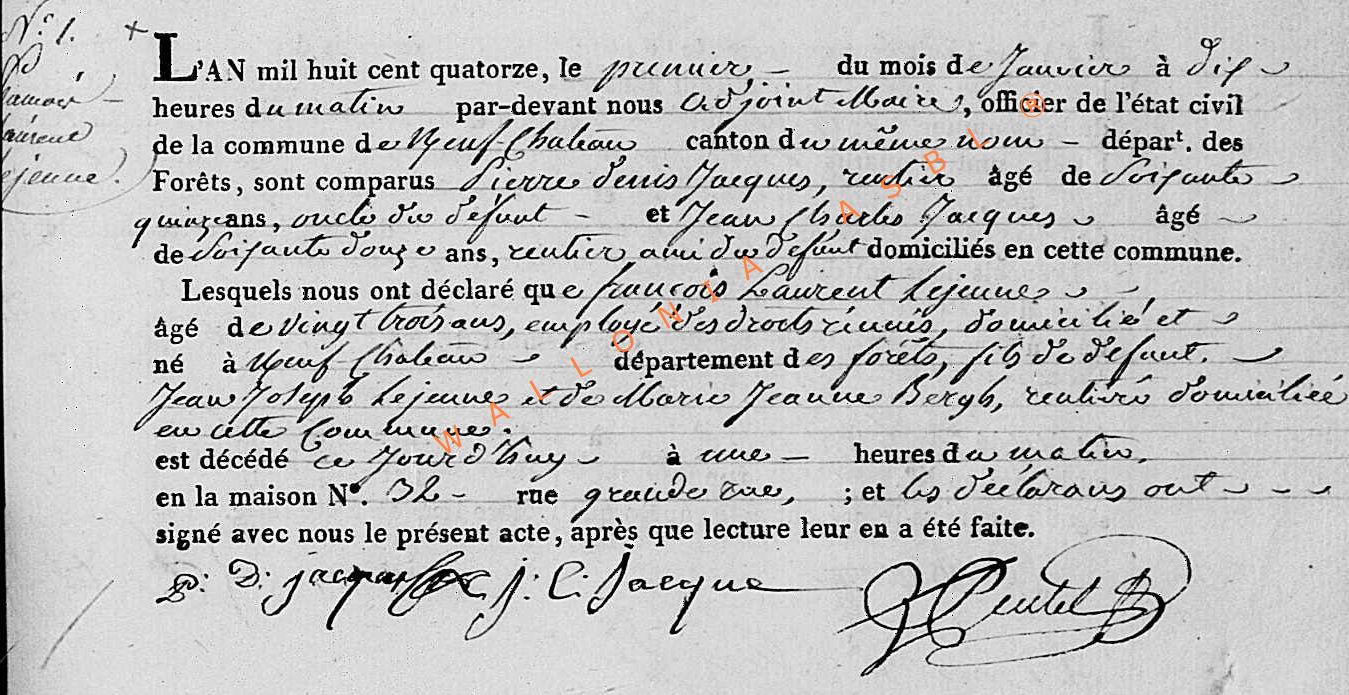 N.º 1.
françois
Laurent
Lejeune.
L'AN mil huit cent quatorze, le premier du mois de Janvier à dix
heures du matin par-devant nous adjoint Maire, officier de l'état civil
de la commune de Neuf-Chateau canton du même nom départ. des
Forêts, sont comparus Pierre denis Jacques, rentier âgé de Soixante
quinze ans, oncle du défunt et Jean Charles Jacques âgé
de Soixante douze ans, rentier ami du défunt domiciliés en cette commune.
Lesquels nous ont déclaré que françois Laurent Lejeune
âgé de vingt trois ans, employé des droits réunis, domicilié et
né à Neuf-Chateau département des forêts, fils de defunt
Jean Joseph Lejeune et de Marie Jeanne Bergh, rentière domiciliée
en cette Commune.
est décédé ce Jourd'huy à une heures du matin.
en la maison Nº. 32 rue grande rue, ; et les déclarans ont
signé avec nous le présent acte, après que lecture leur en a été faite.
P: D: jacques J: C: Jacque
WALLONIA ASBL @